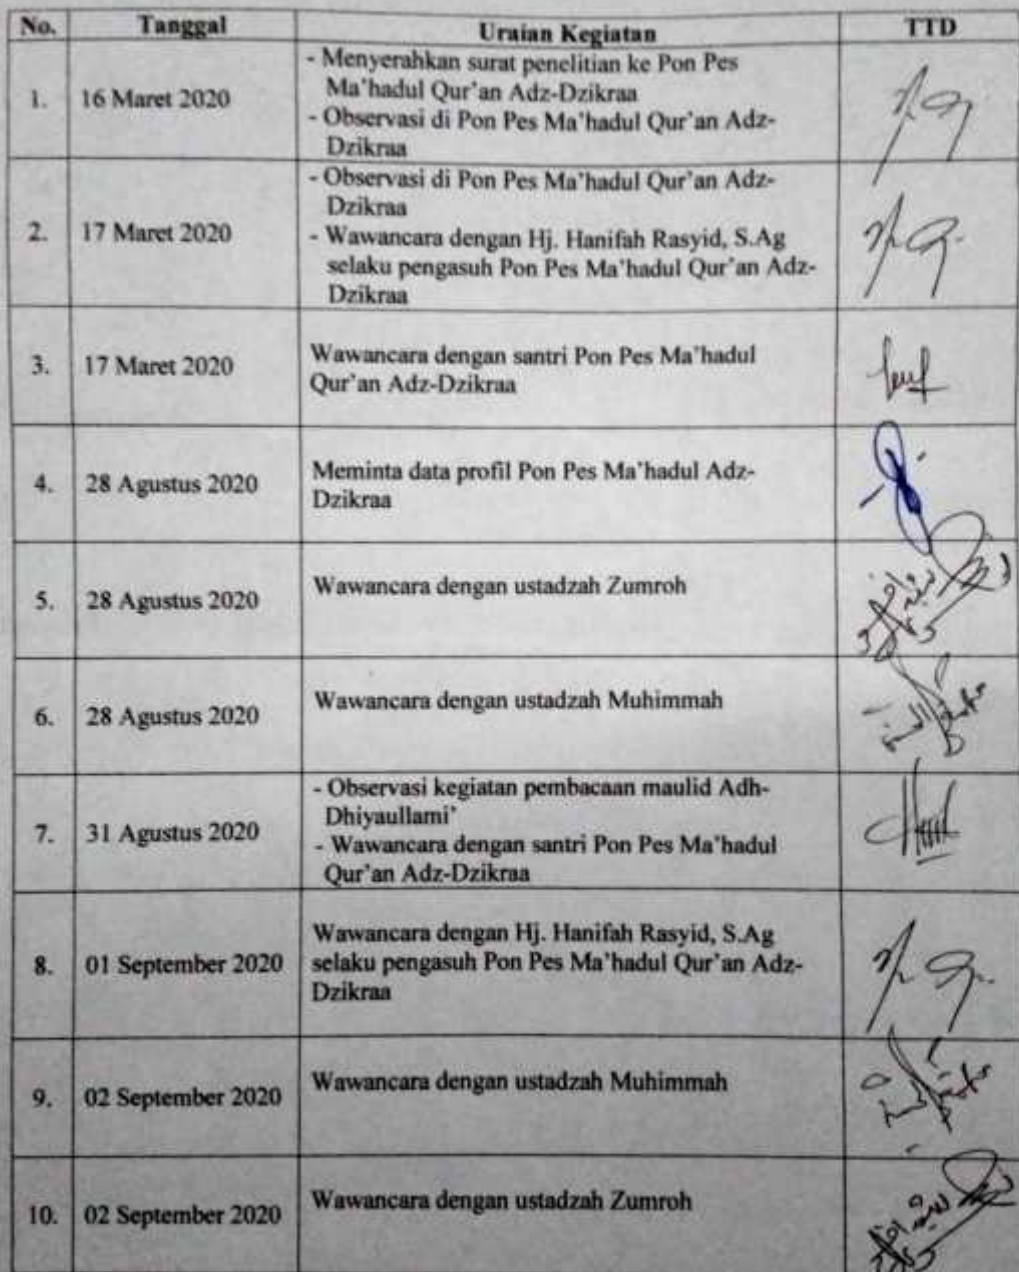 No. Tanggal Uraian Kegiatan TTD
- Menyerahkan surat penelitian ke Pon Pes
1. 16 Maret 2020 Ma'hadul Qur'an Adz-Dzikraa
- Observasi di Pon Pes Ma'hadul Qur'an Adz-
Dzikraa
- Observasi di Pon Pes Ma'hadul Qur'an Adz-
Dzikraa
2. 17 Maret 2020 - Wawancara dengan Hj. Hanifah Rasyid, S.Ag
selaku pengasuh Pon Pes Ma'hadul Qur'an Adz-
Dzikraa
3. 17 Maret 2020 Wawancara dengan santri Pon Pes Ma'hadul
Qur'an Adz-Dzikraa
4. 28 Agustus 2020 Meminta data profil Pon Pes Ma'hadul Adz-
Dzikraa
5. 28 Agustus 2020 Wawancara dengan ustadzah Zumroh
6. 28 Agustus 2020 Wawancara dengan ustadzah Muhimmah
- Observasi kegiatan pembacaan maulid Adh-
Dhiyaullami'
7. 31 Agustus 2020 - Wawancara dengan santri Pon Pes Ma'hadul
Qur'an Adz-Dzikraa
Wawancara dengan Hj. Hanifah Rasyid, S.Ag
8. 01 September 2020 selaku pengasuh Pon Pes Ma'hadul Qur'an Adz-
Dzikraa
9. 02 September 2020 Wawancara dengan ustadzah Muhimmah
10. 02 September 2020 Wawancara dengan ustadzah Zumroh